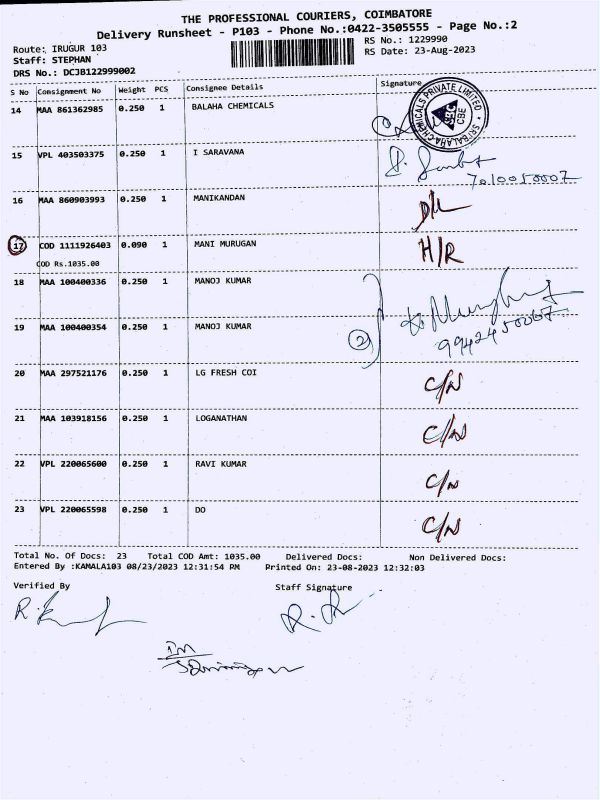 THE PROFESSIONAL COURIERS, COIMBATORE
Delivery Runsheet - P103 - Phone No.:0422-3505555 - Page No.:2
Route: IRUGUR 103 RS No.: 1229990
Staff: STEPHAN RS Date: 23-Aug-2023
DRS No.: DCJB122999002
S No Consignment No Weight PCS Consignee Details Signature
14 MAA 861362985 0.250 1 BALAHA CHEMICALS
SRI BALAHA CHEMICALS PRIVATE LIMITED CBE
15 VPL 403503375 0.250 1 I SARAVANA
7010050007
16 MAA 860903993 0.250 1 MANIKANDAN D/L
17 COD 1111926403 0.090 1 MANI MURUGAN H/R
COD Rs.1035.00
18 MAA 100400336 0.250 1 MANOJ KUMAR
19 MAA 100400354 0.250 1 MANOJ KUMAR 2 9942450067
20 MAA 297521176 0.250 1 LG FRESH COI C/N
21 MAA 103918156 0.250 1 LOGANATHAN C/N
22 VPL 220065600 0.250 1 RAVI KUMAR C/N
23 VPL 220065598 0.250 1 DO C/N
Total No. Of Docs: 23 Total COD Amt: 1035.00 Delivered Docs: Non Delivered Docs:
Entered By :KAMALA103 08/23/2023 12:31:54 PM Printed On: 23-08-2023 12:32:03
Verified By Staff Signature